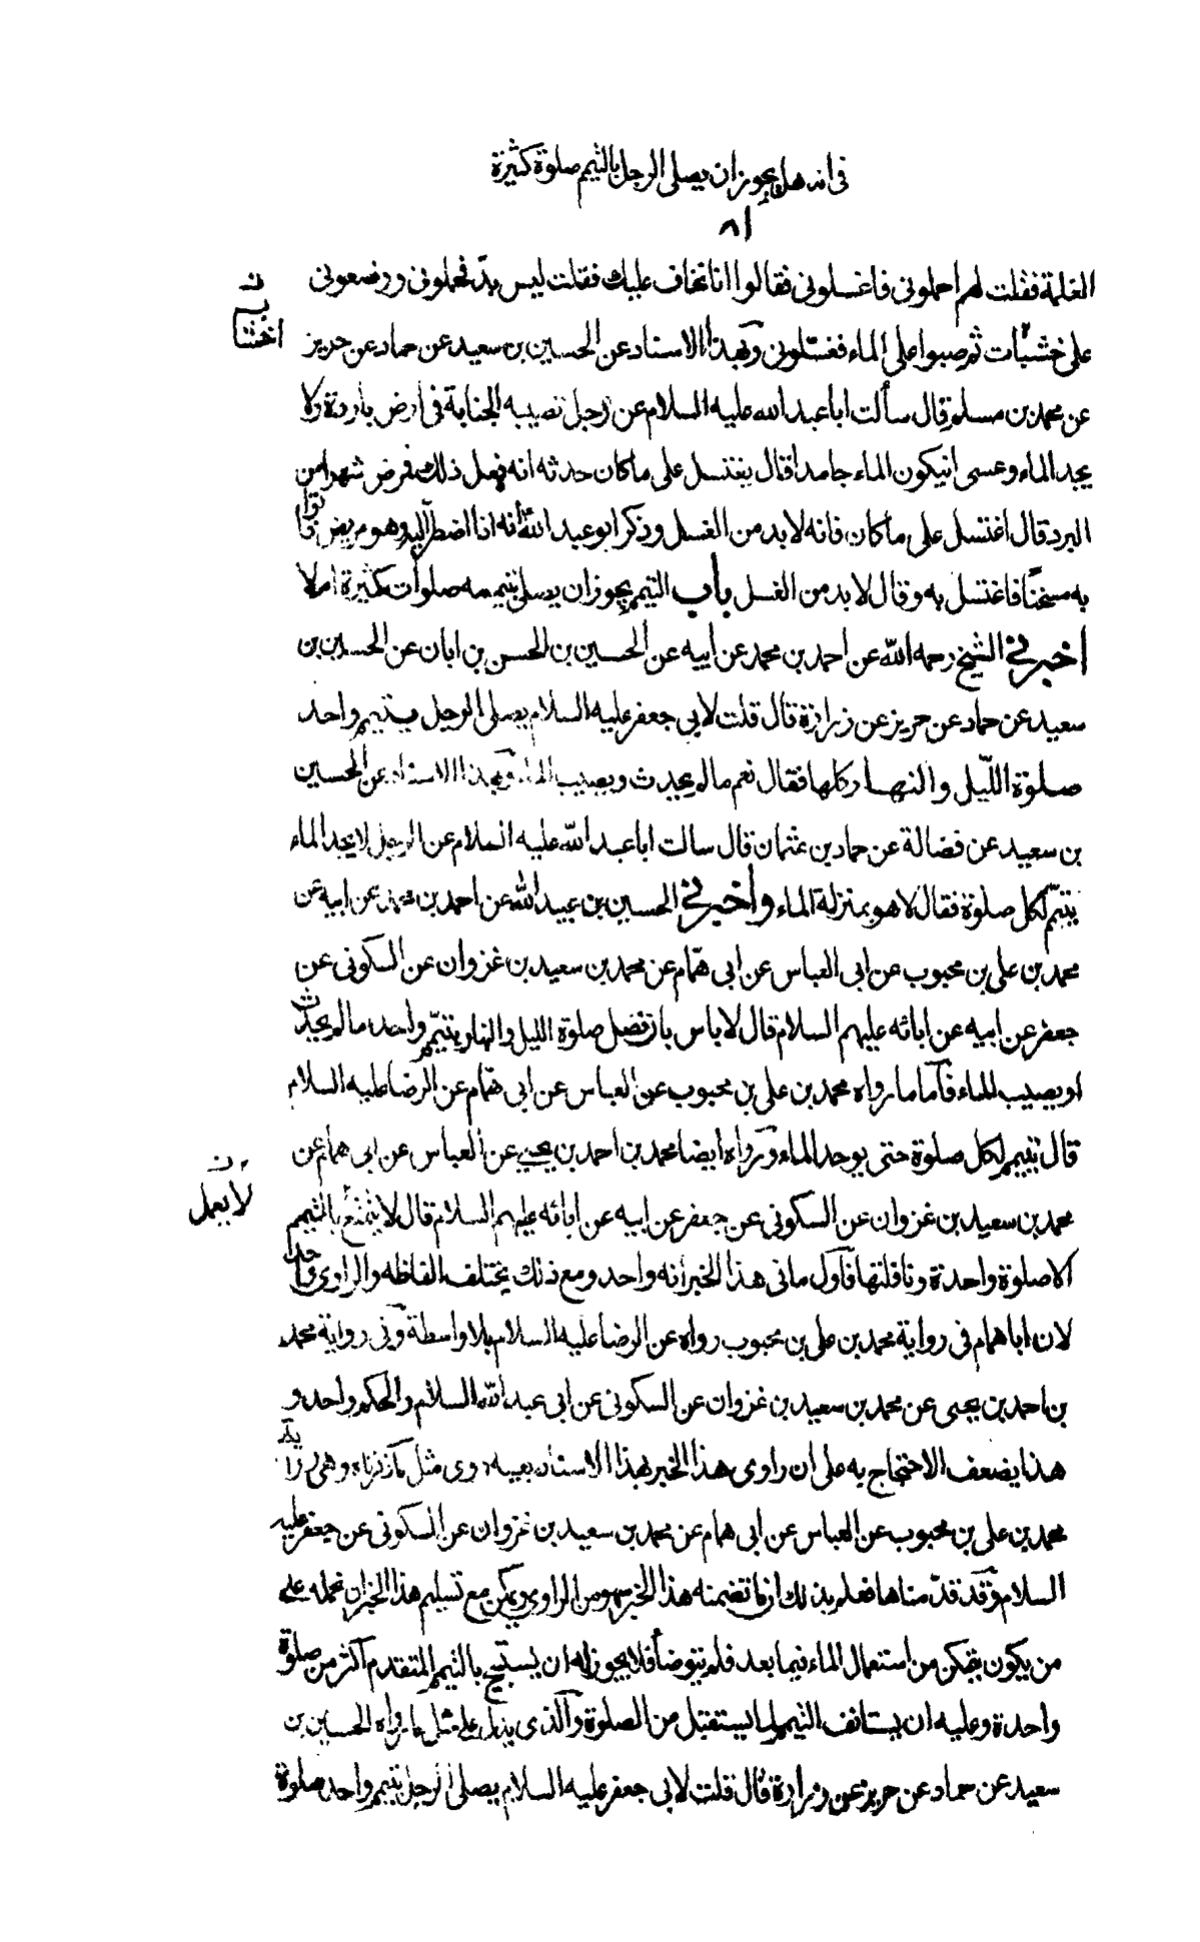 فى انه هل يجوز ان يصلى الرجل بالتيمم صلوة كثيرة
٨١
الغلمة فقلت لهم احملونى فاغسلونى فقالوا انا نخاف عليك فقلت ليس بدّ فحملونى ووضعونى
على خشبات ثم صبوا على الماء فغسّلونى وبهذا الاسناد عن الحسين بن سعيد عن حماد عن حريز
عن محمد بن مسلم قال سألت ابا عبد الله عليه السلام عن رجل تصيبه الجنابة فى ارض باردة ولا
يجد الماء وعسى ان يكون الماء جامدا قال يغتسل على ما كان حدثه انه فعل ذلك فمرض شهرا من
البرد قال اغتسل على ما كان فانه لابد من الغسل وذكر ابو عبد الله انه اذا اضطر اليه وهو مريض فاتوا
به مسخنا فاغتسل به وقال لابد من الغسل باب التيمم يجوز ان يصلى بتيممه صلوات كثيرة ام لا
اخبرنى الشيخ رحمه الله عن احمد بن محمد عن ابيه عن الحسين بن الحسن بن ابان عن الحسين بن
سعيد عن حماد عن حريز عن زرارة قال قلت لابى جعفر عليه السلام يصلى الرجل بتيمم واحد
صلوة اللّيل والنهار كلها فقال نعم ما لم يحدث او يصيب الماء وبهذا الاسناد عن الحسين
بن سعيد عن فضالة عن حماد بن عثمان قال سالت ابا عبد الله عليه السلام عن الرجل لا يجد الماء
يتيمّم لكل صلوة فقال لا هو بمنزلة الماء واخبرنى الحسين بن عبيد الله عن احمد بن محمد عن ابيه عن
محمد بن على بن محبوب عن ابى العباس عن ابى همّام عن محمد بن سعيد بن غزوان عن السكونى عن
جعفر عن ابيه عن ابائه عليهم السلام قال لا باس بان تصل صلوة الليل والنهار بتيمّم واحد ما لم يحدث
او يصيب الماء فآما ما رواه محمد بن على بن محبوب عن العباس عن ابى همام عن الرضا عليه السلام
قال يتيمم لكل صلوة حتى يوجد الماء ورواه ايضا محمد بن احمد بن يحيى عن العباس عن ابى همام عن
محمد بن سعيد بن غزوان عن السكونى عن جعفر عن ابيه عن ابائه عليهم السلام قال لا يتمتع بالتيمم
الا صلوة واحدة ونافلتها فآول ما فى هذا الخبر انه واحد ومع ذلك يختلف الفاظه والراوى واحد
لان ابا همام فى رواية محمد بن على بن محبوب رواه عن الرضا عليه السلام بلا واسطة وفى رواية محمد
بن احمد بن يحيى عن محمد بن سعيد بن غزوان عن السكونى عن ابى عبد الله السلام والحكم واحد و
هذا يضعف الاحتجاج به على ان راوى هذا الخبر بهذا الاسناد بعينه روى مثل ما ذكرناه وهى رواية
محمد بن على بن محبوب عن العباس عن ابى همام عن محمد بن سعيد بن غزوان عن السكونى عن جعفر عليه
السلام وقد قدّمناها فعلم بذلك ان ما تضمنه هذا الخبر سهو من الراوى ويمكن مع تسليم هذا الخبر ان نحمله على
من يكون تمكن من استعمال الماء فيما بعد فلم يتوضأ فلا يجوز له ان يستبيح بالتيمم المتقدم اكثر من صلوة
واحدة وعليه ان يستانف التيمم لما يستقبل من الصلوة والذى يدل على مثل ما رواه الحسين بن
سعيد عن حماد عن حريز عن زرارة قال قلت لابى جعفر عليه السلام يصلى الرجل بتيمم واحد صلوة
لا يعمل